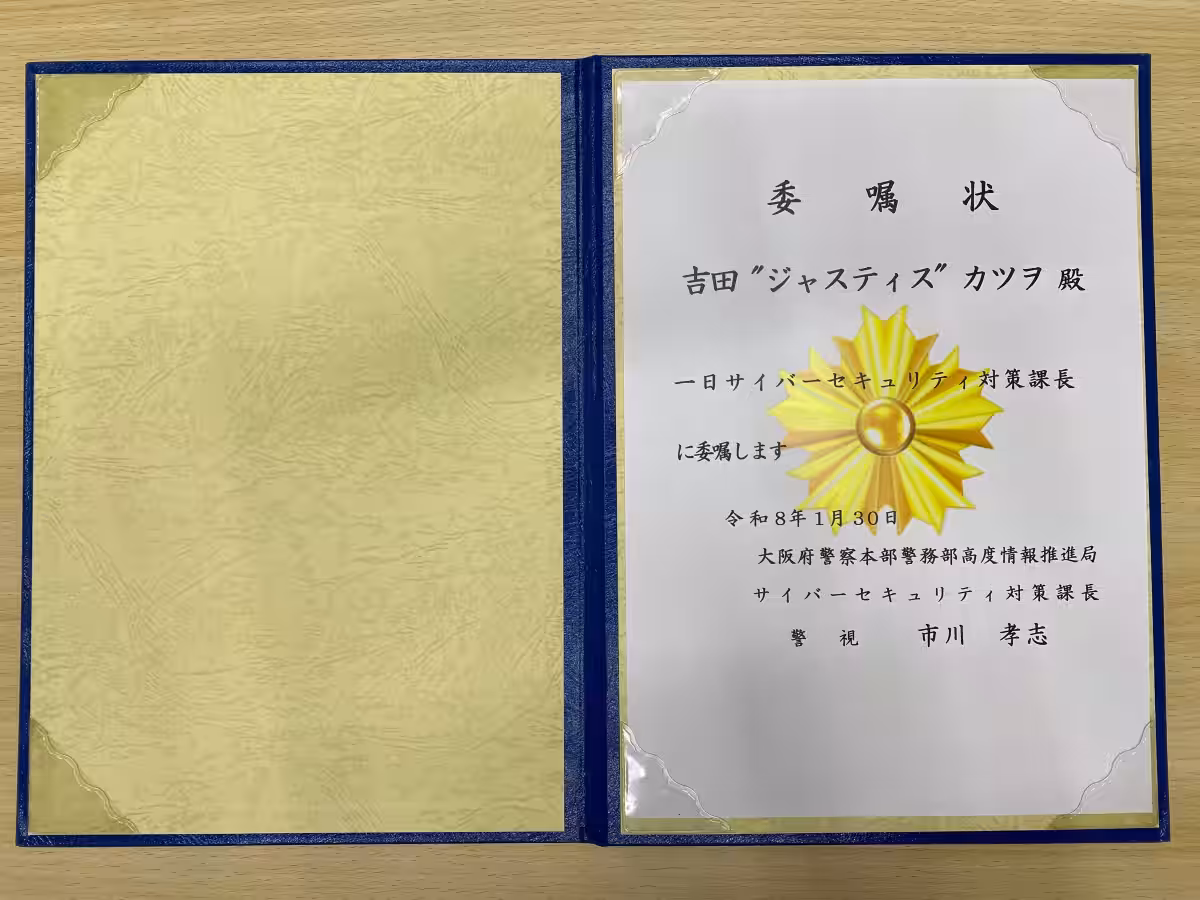 委嘱状
吉田〝ジャスティス〟カツヲ 殿
一日サイバーセキュリティ対策課長
に委嘱します
令和8年1月30日
大阪府警察本部警務部高度情報推進局
サイバーセキュリティ対策課長
警視 市川 孝志